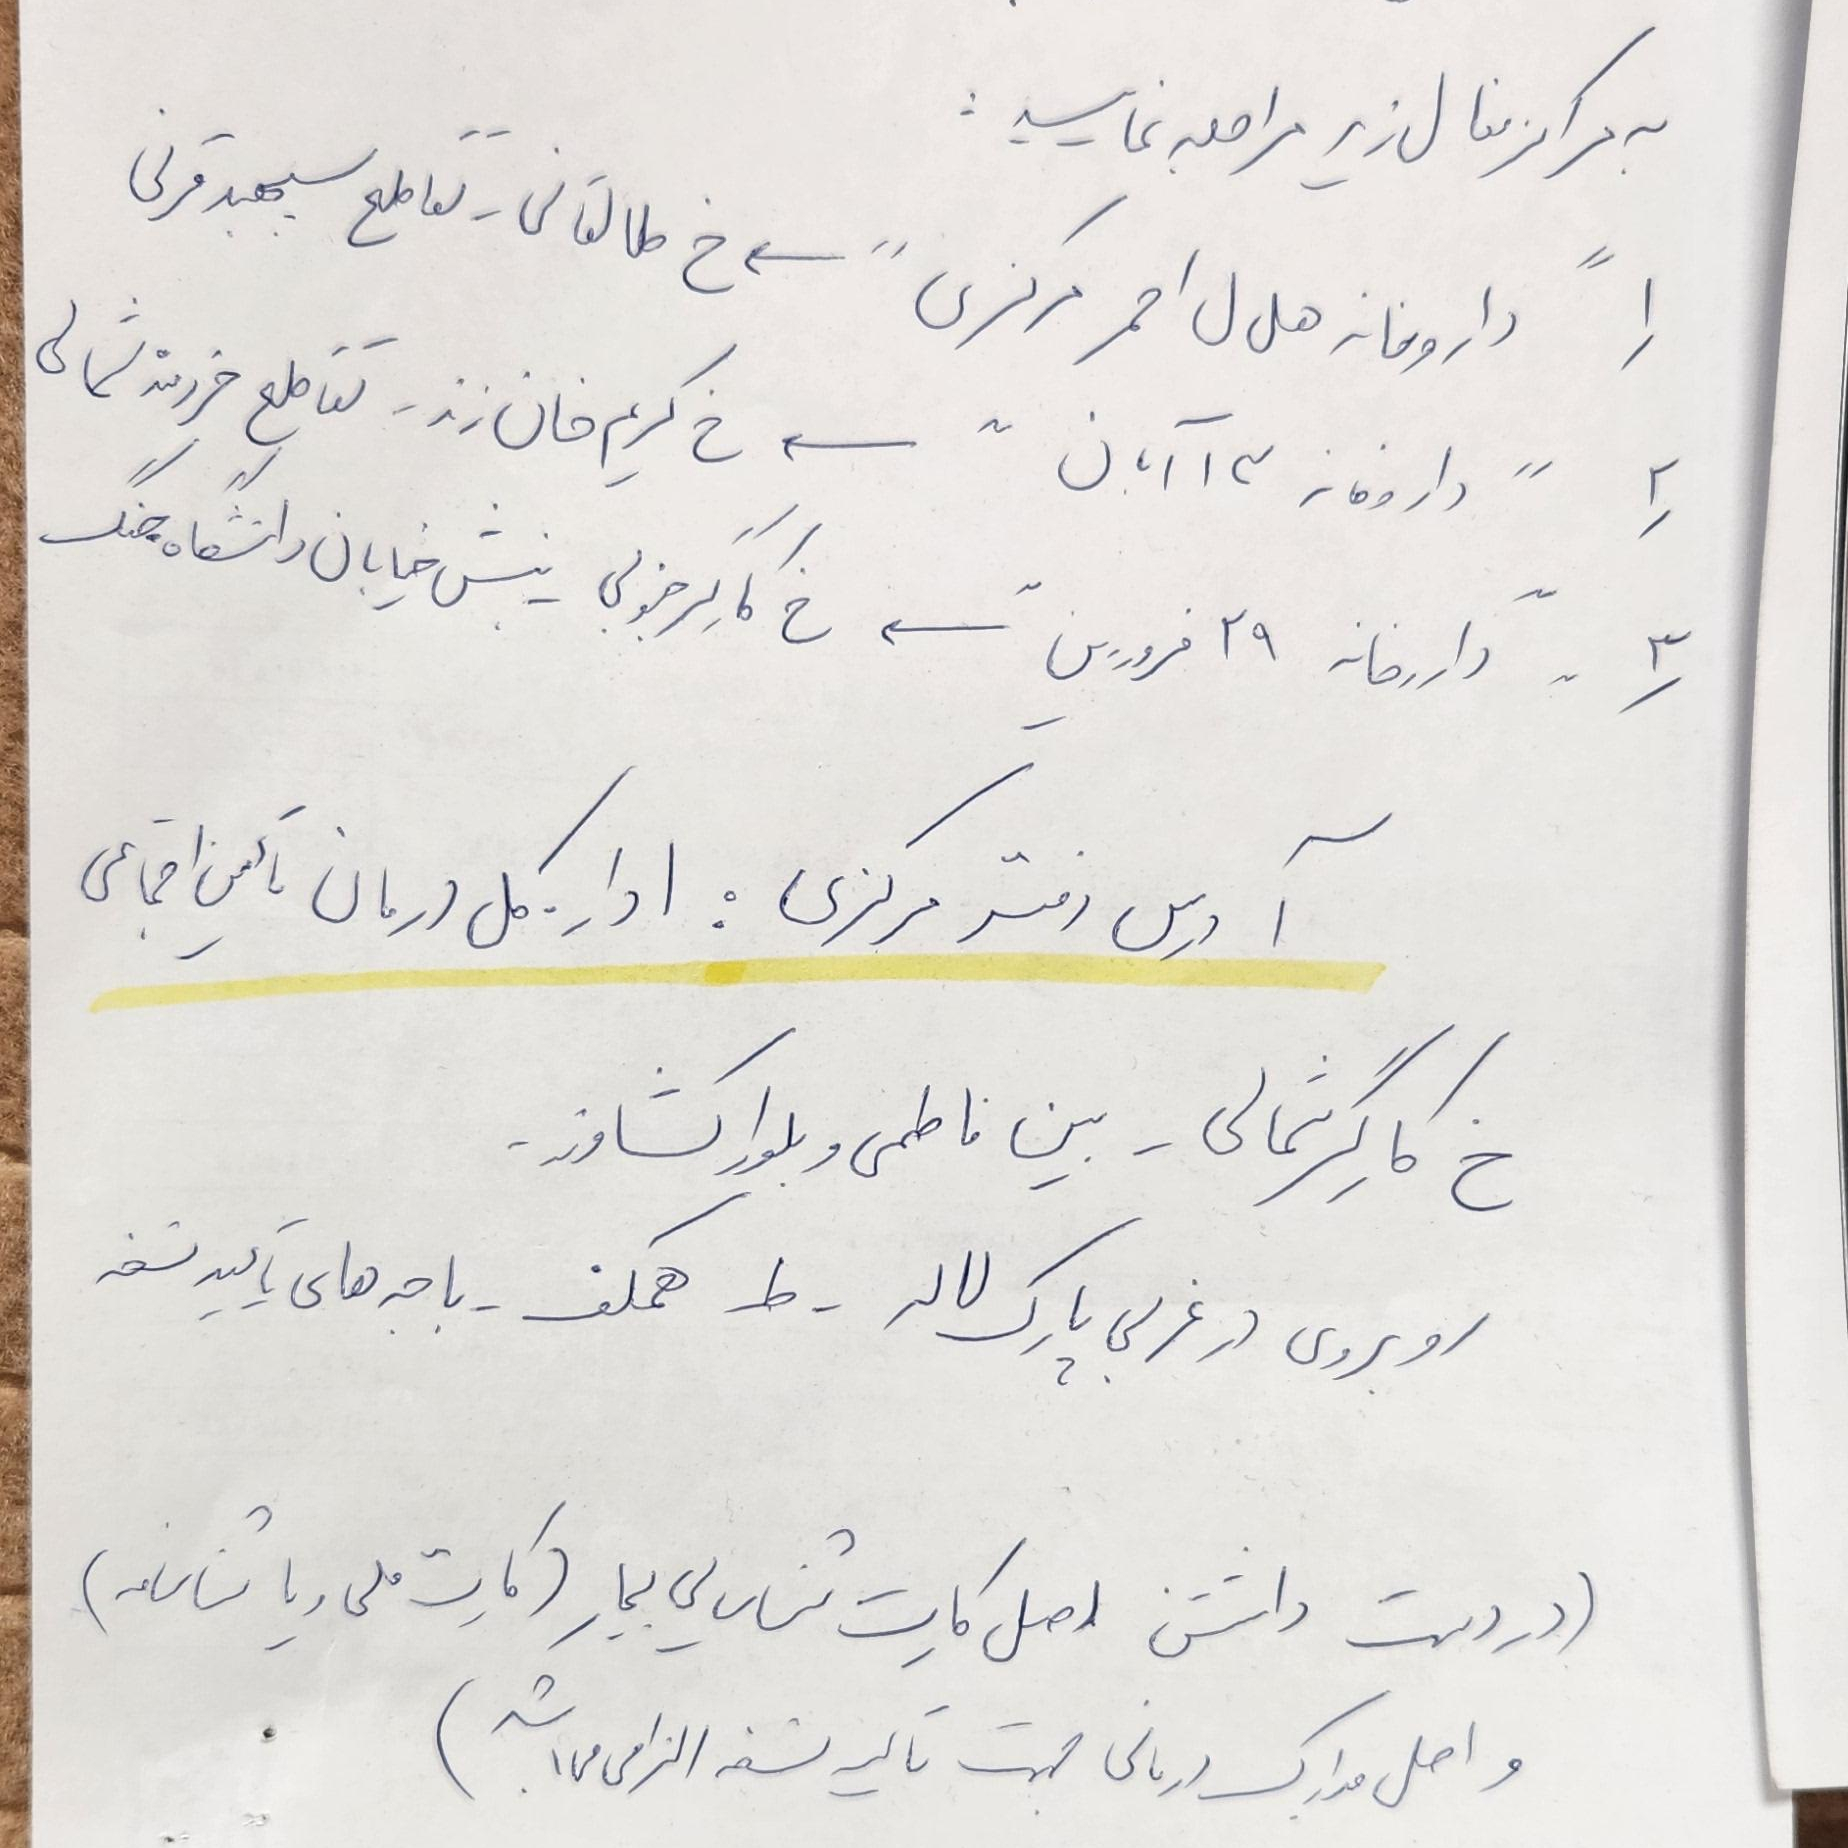 به مراکز فعال زیر مراجعه نمایید:
۱ر "داروخانه هلال احمر مرکزی" ← خ طالقانی - تقاطع سپهبد قرنی
۲ر "داروخانه ۱۳ آبان" ← خ کریم خان زند - تقاطع خردمند شمالی
۳ر "داروخانه ۲۹ فروردین" ← خ کارگر جنوبی - نبش خیابان دانشگاه جنگ
آدرس دفتر مرکزی: اداره کل درمان تأمین اجتماعی
خ کارگر شمالی - بین فاطمی و بلوار کشاورز -
روبروی در غربی پارک لاله - ط همکف - باجه های تأیید نسخه
(در دست داشتن اصل کارت شناسایی بیمار (کارت ملی و یا شناسنامه)
و اصل مدارک درمانی جهت تأیید نسخه الزامی می باشد)